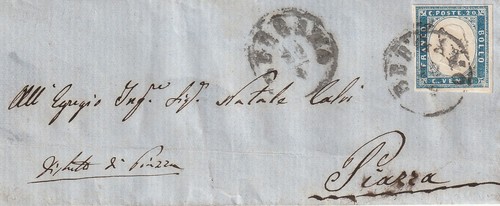 C. POSTE 20
FRANCO
BOLLO
C. VENTI
All' Egregio Ing.e Sig. Natale Calvi
Distretto di Piazza
Piazza